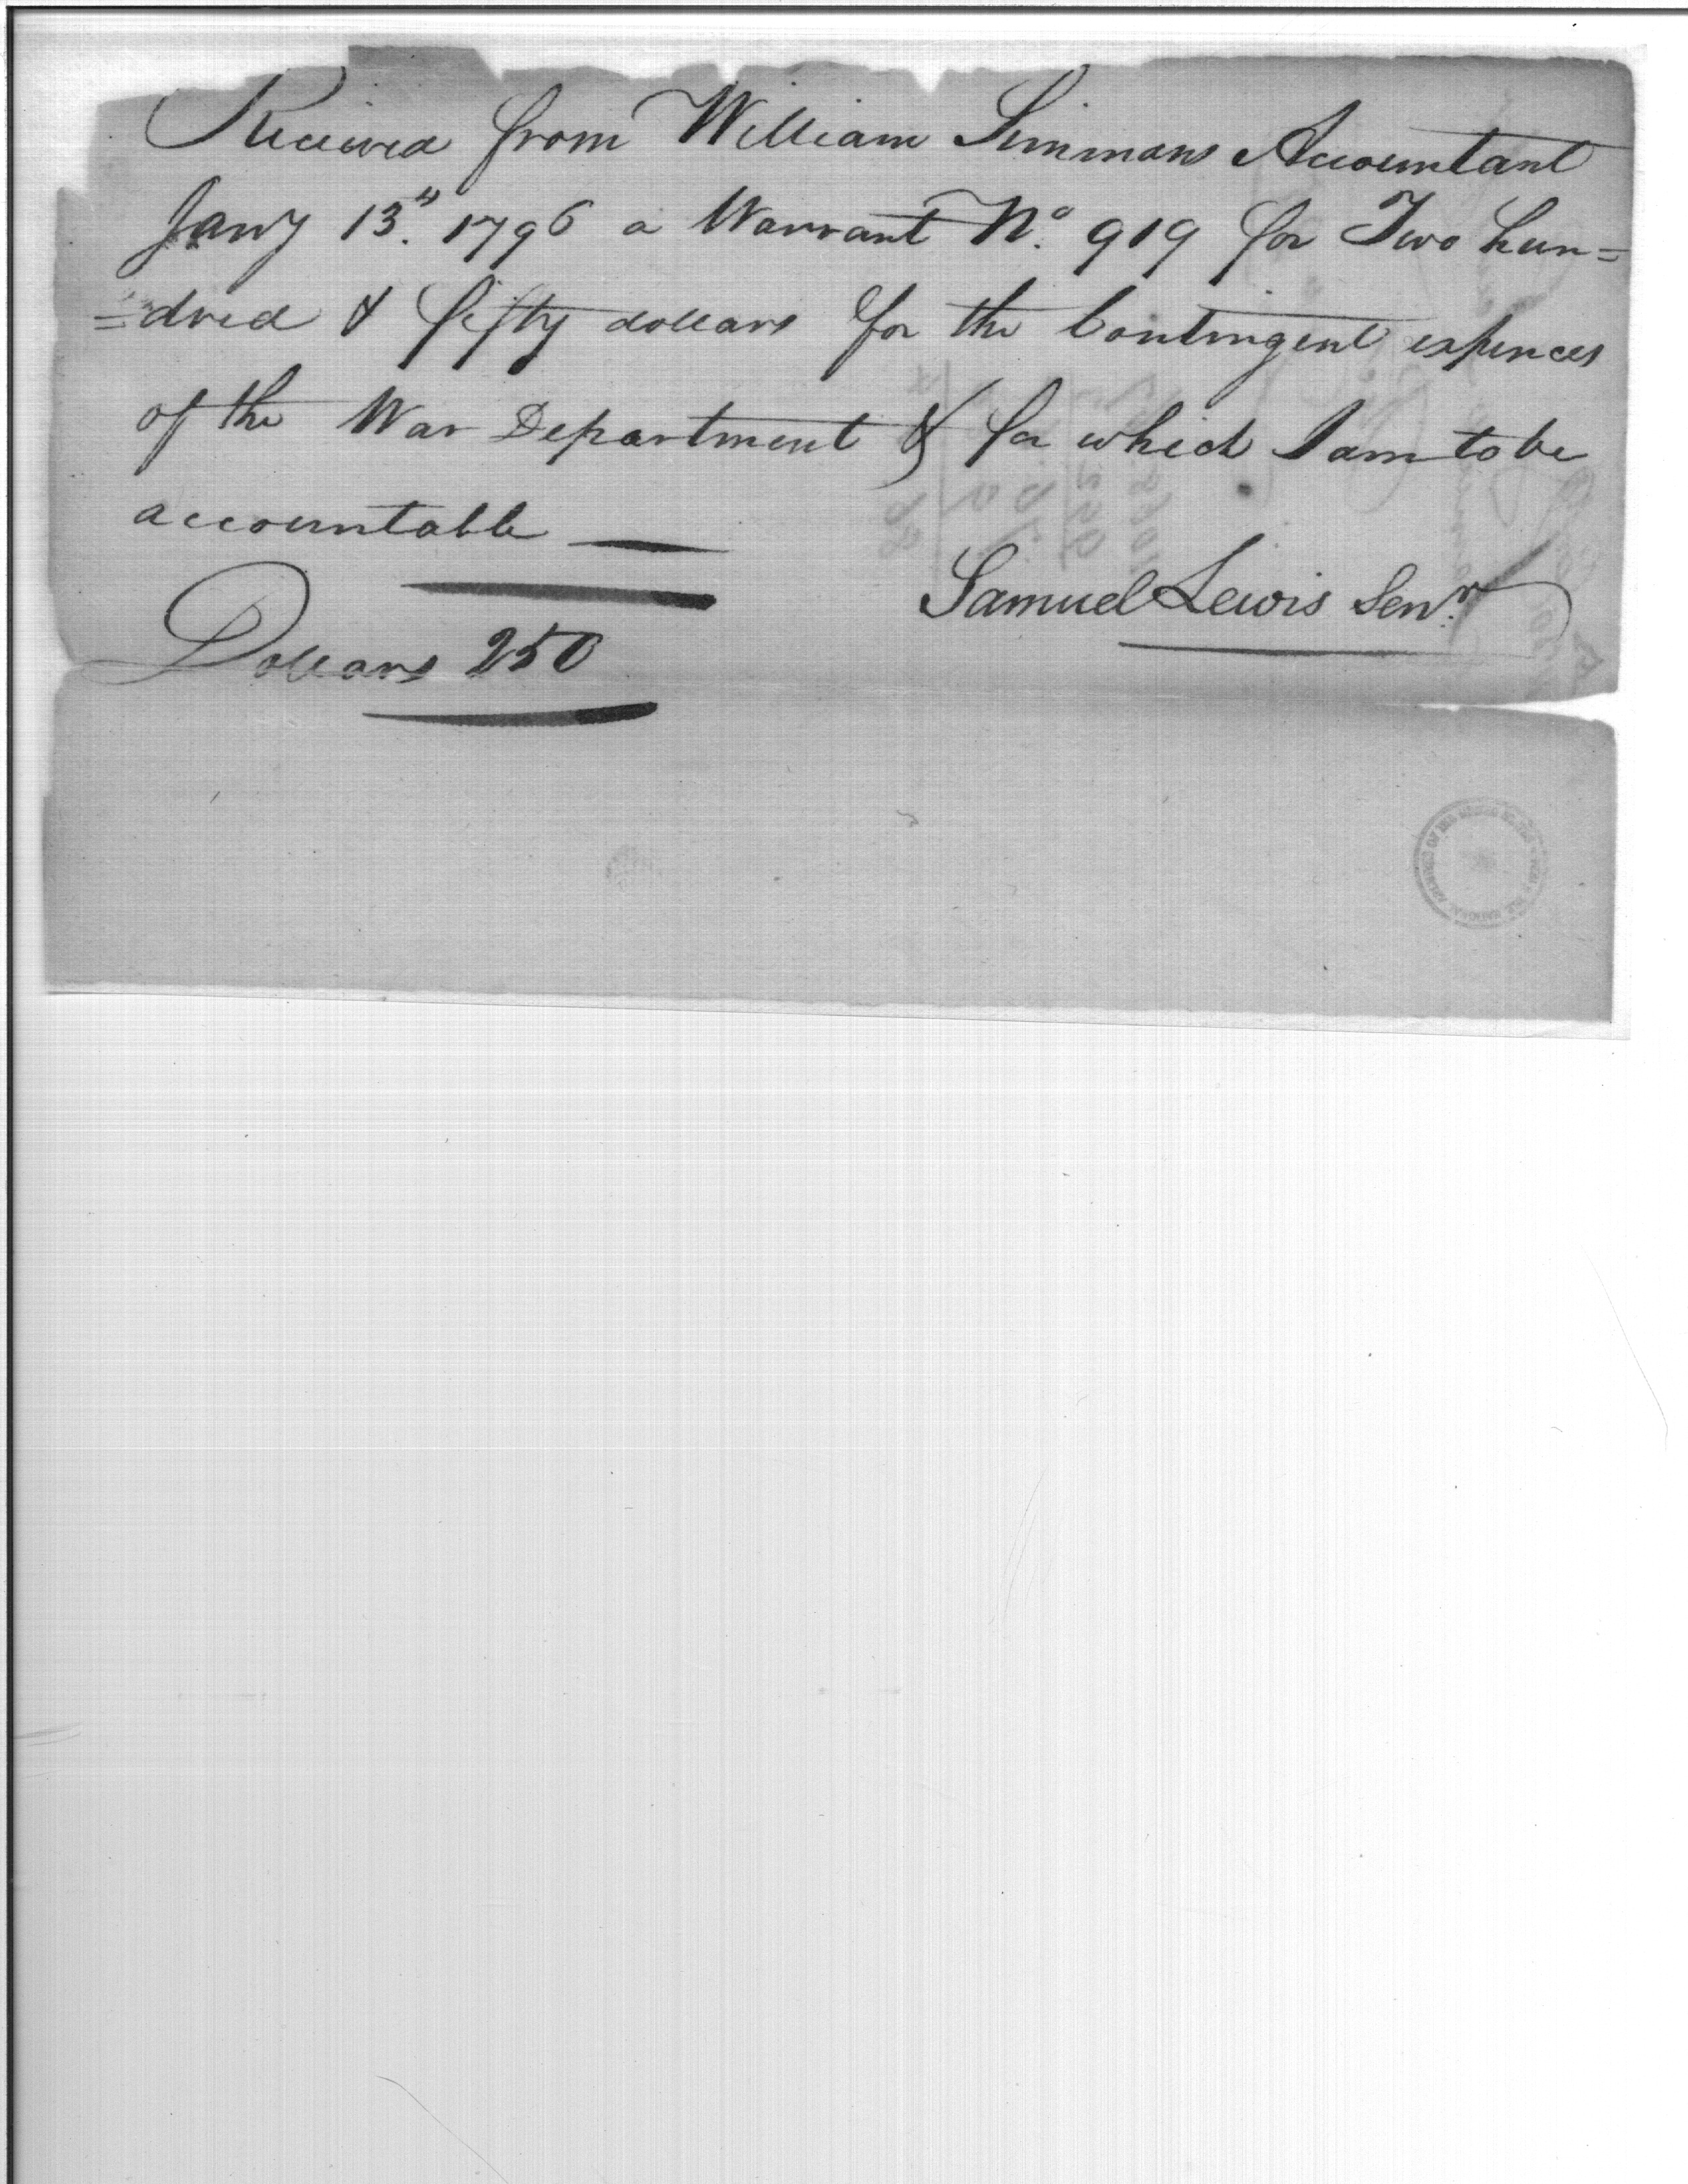 Received from William Simmons Accountant
Jany 13th. 1796 a Warrant No. 919 for Two hun=
=dred & fifty dollars for the Contingent expences
of the War Department & for which I am to be
accountable
Samuel Lewis Senr.
Dollars 250